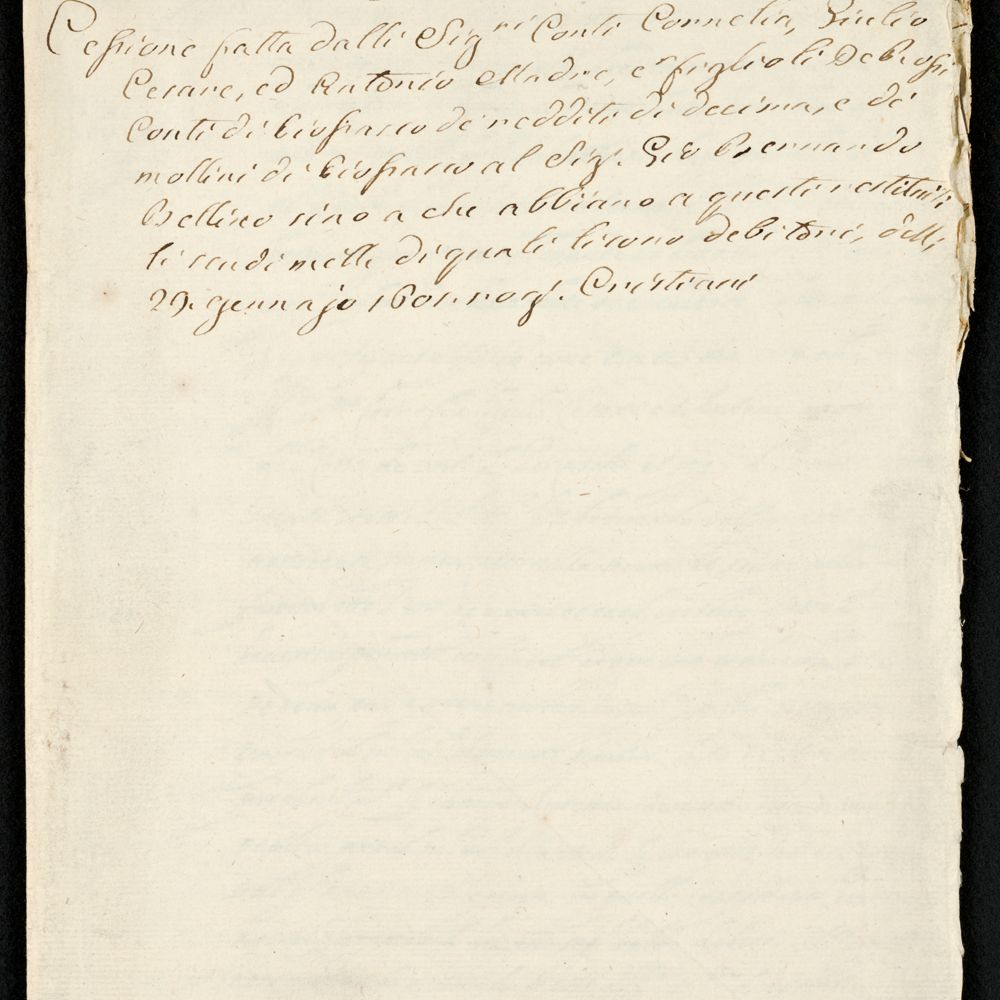 Cessione fatta dalli Sig.ri Conti Cornelia, Giulio
Cesare, ed Antonio Madre, e figlioli De Rossi
Conti di Piosasco de redditi di decima, e di
mollini di Piosasco al Sig.r Gio Bernardo
Bellino sino a che abbiano a questi restituiti
li scudi mille di quali li sono debitori, delli
29. Gennajo 1601. rog.o Cristiani